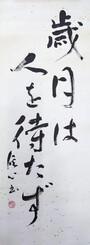 歳月は
人を待たず